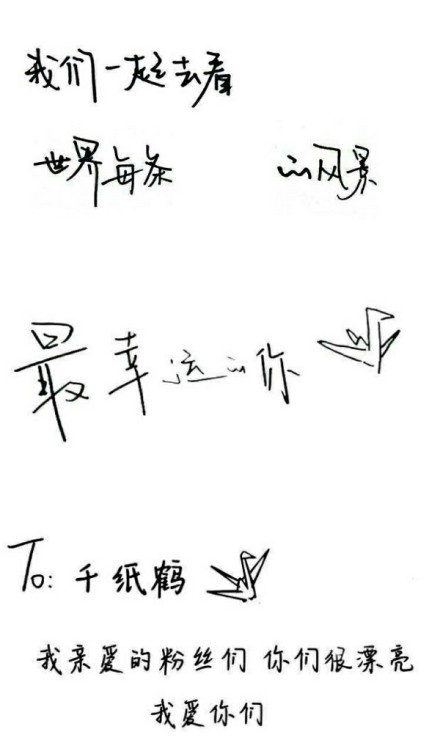 我们一起去看
世界每条 的风景
最幸运的你
To: 千纸鹤
我亲爱的粉丝们 你们很漂亮
我爱你们